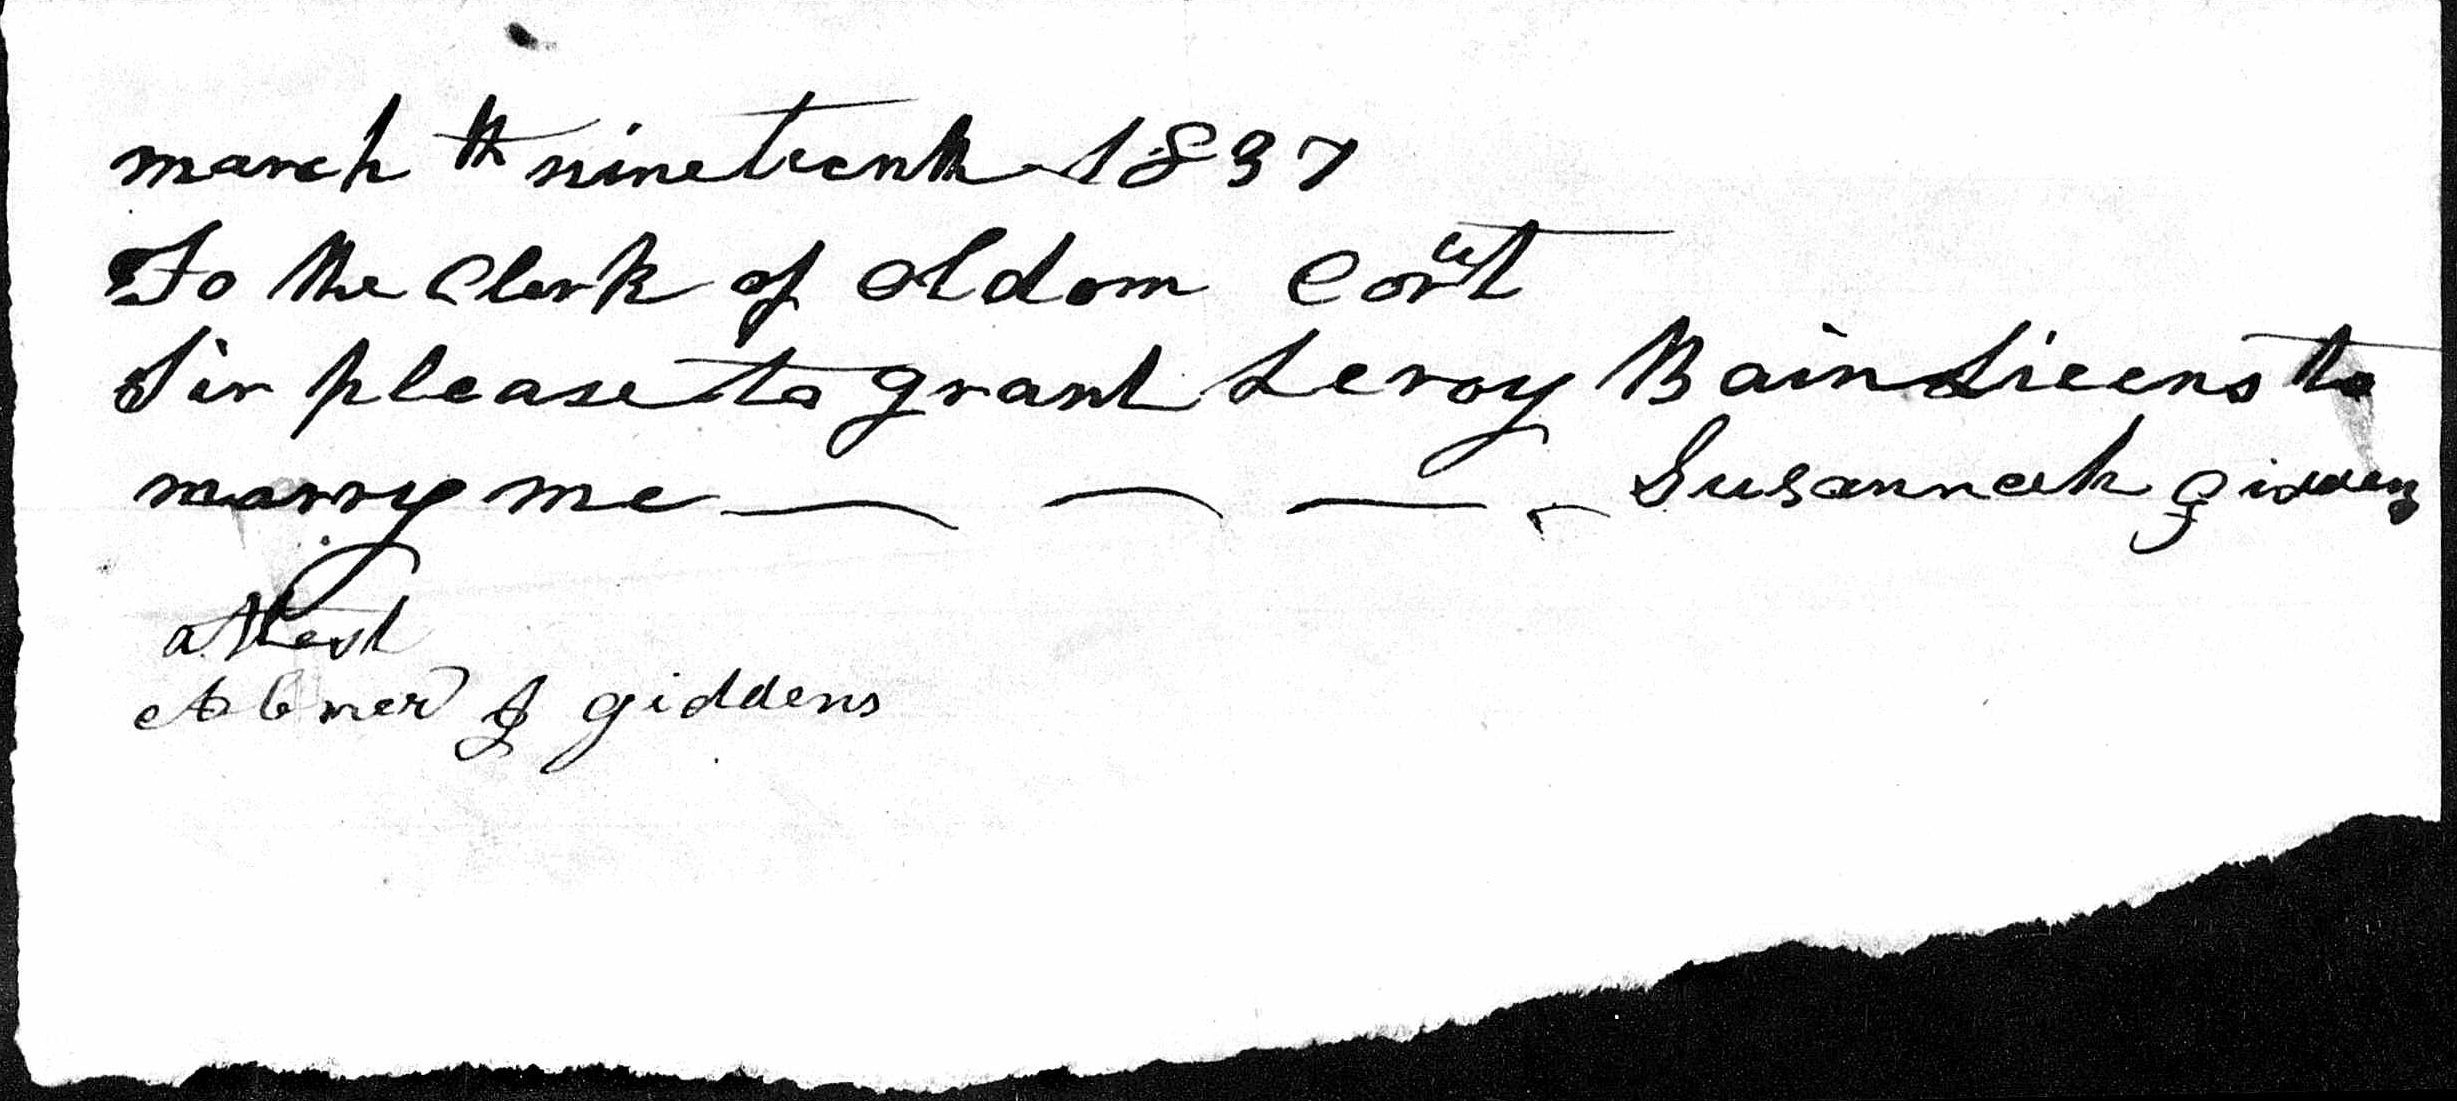 march th ninetienth 1837
To the Clerk of oldom Court
Sir please to grant Leroy Bain Licens to
marry me — — — - Susannah giddens
attest
Abner J giddens